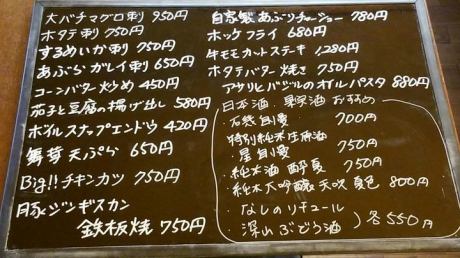 大バチマグロ刺 950円
ホタテ刺 750円
するめいか刺 750円
あぶらガレイ刺 650円
コーンバター炒め 450円
茄子と豆腐の揚げ出し 580円
ボイルスナップエンドウ 420円
舞茸天ぷら 650円
Big!! チキンカツ 750円
豚ジンギスカン
鉄板焼 750円
自家製あぶりチャーシュー 780円
ホッケフライ 680円
牛モモカットステーキ 1,280円
ホタテバター焼き 750円
アサリとバジルのオイルパスタ 880円
日本酒・果実酒 おすすめ
・石鎚 自慢 700円
・特別純米生原酒
星自慢 750円
・純米酒 酔夏 750円
・純米大吟醸 天吹 夏色 800円
・なしのリキュール
・深山ぶどう酒 各550円